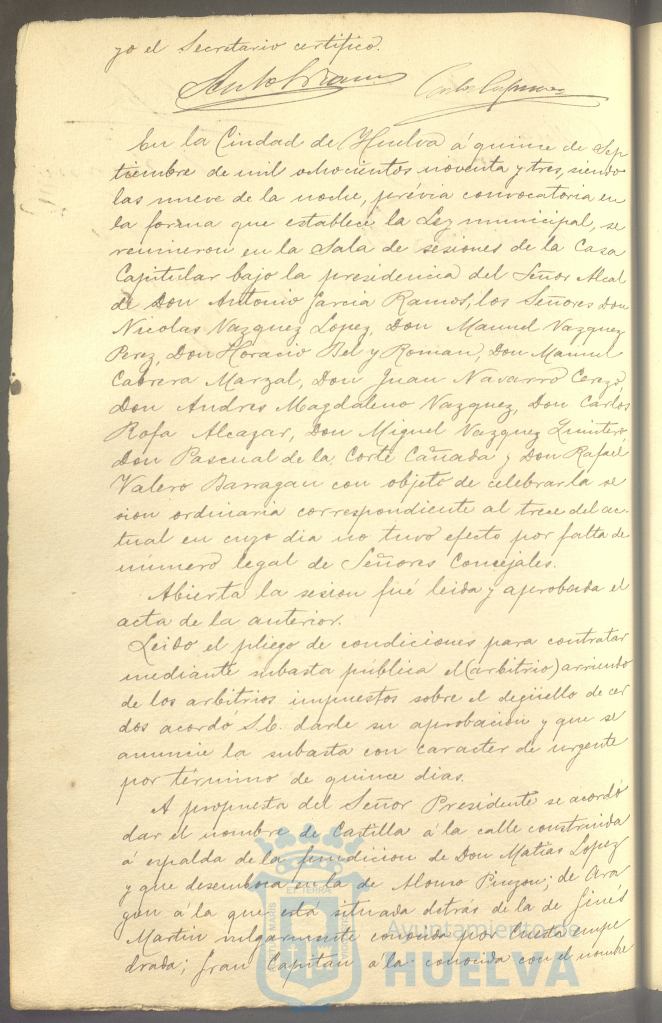 yo el Secretario certifico.
En la Ciudad de Huelva á quince de Sep
tiembre de mil ochocientos noventa y tres, siendo
las nueve de la noche, prévia convocatoria en
la forma que establece la Ley municipal, se
reunieron en la Sala de sesiones de la Casa
Capitular bajo la presidencia del Señor Alcal
de Don Antonio Garcia Ramos, los Señores Don
Nicolas Vazquez Lopez, Don Manuel Vazquez
Perez, Don Horacio Bel y Roman, Don Manuel
Cabrera Marzal, Don Juan Navarro Cerezo,
Don Andres Magdaleno Vazquez, Don Carlos
Rofa Alcazar, Don Miguel Vazquez Quintero,
Don Pascual de la Corte Cañada y Don Rafael
Valero Barragan con objeto de celebrar la se
sion ordinaria correspondiente al trece del ac-
tual en cuyo dia no tuvo efecto por falta de
número legal de Señores Concejales.
Abierta la sesion fué leida y aprobada el
acta de la anterior.
Leido el pliego de condiciones para contratar
mediante subasta pública el (arbitrio) arriendo
de los arbitrios impuestos sobre el degüello de cer
dos acordo S.E. darle su aprobacion y que se
anuncie la subasta con caracter de urgente
por término de quince dias.
A propuesta del Señor Presidente se acordó
dar el nombre de Castilla á la calle construida
á espalda de la fundicion de Don Matias Lopez
y que desemboca en la de Alonso Pinzon; de Ara
gon á la que está situada detrás de la de Ginés
Martin vulgarmente conocida por Cuesta empe
drada; Gran Capitan á la conocida con el nombre
Ayuntamiento de
HUELVA